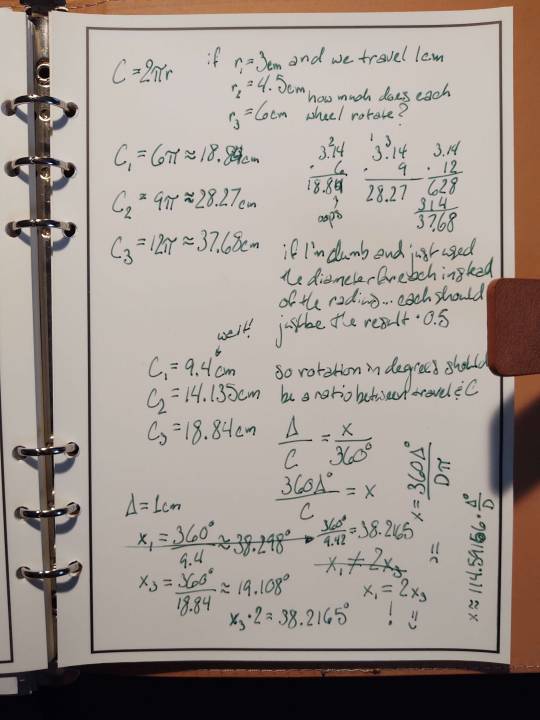 C = 2πr
if r₁ = 3cm and we travel 1cm
r₂ = 4.5cm how much does each
r₃ = 6cm wheel rotate?
C₁ = 6π ≈ 18.84cm
C₂ = 9π ≈ 28.27cm
C₃ = 12π ≈ 37.68cm
2
3.14
· 6
18.84
?
oops
1 3
3.14
· 9
28.27
3.14
· 12
628
314
37.68
if I'm dumb and just used
the diameter for each instead
of the radius... each should
just be the result · 0.5
wait!
C₁ = 9.4cm
C₂ = 14.135cm
C₃ = 18.84cm
so rotation in degrees should
be a ratio between travel & C
Δ/C = x/360°
360Δ°/C = x
x = 360Δ°/Dπ
=
x ≈ 114.59156 · Δ°/D
Δ = 1cm
x₁ = 360°/9.4 ≈ 38.298°
360°/9.42 = 38.2165
x₁ ≠ 2x₃
x₃ = 360°/18.84 ≈ 19.108°
x₁ = 2x₃
x₃ · 2 = 38.2165°
! =)